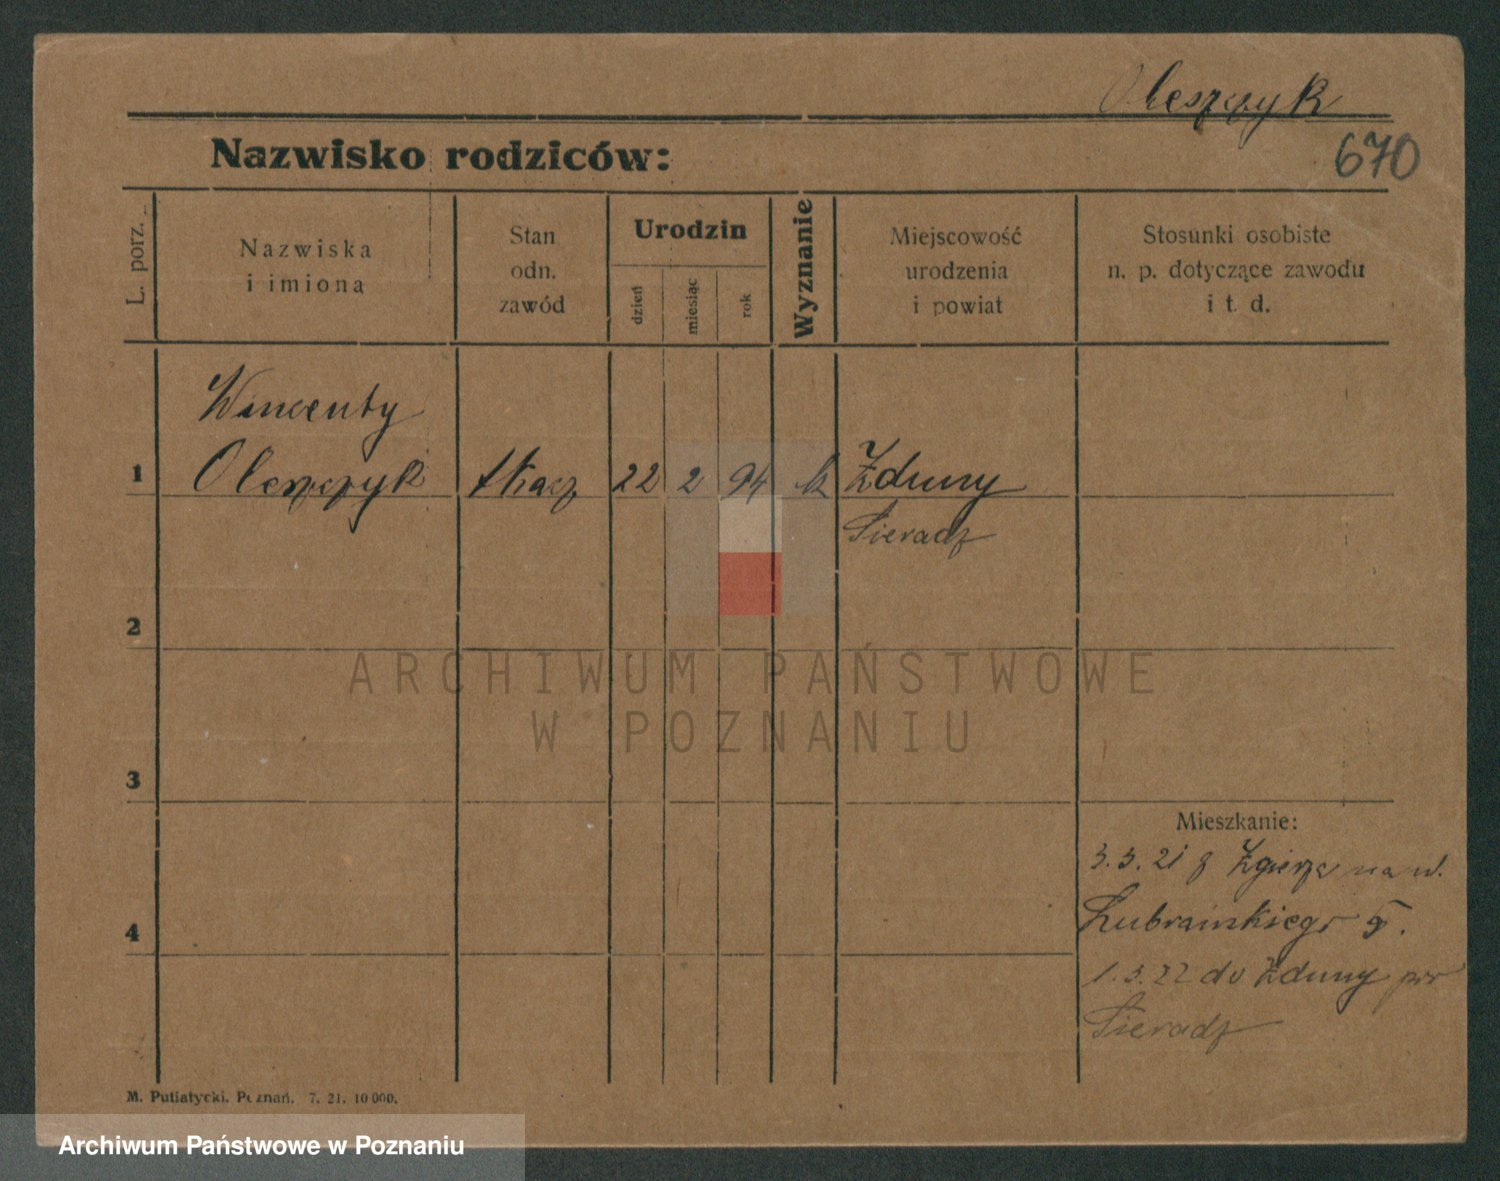 Oleszczyk
670
Nazwisko rodziców:
L. porz.
Nazwiska
i imiona
Stan
odn.
zawód
Urodzin
dzień
miesiąc
rok
Wyznanie
Miejscowość
urodzenia
i powiat
Stosunki osobiste
n. p. dotyczące zawodu
i t. d.
Wincenty
1 Oleszczyk tkacz 22 2 94 k Zduny
Sieradz
2
3
Mieszkanie:
3.3.21 z Zgierza na ul.
4
Lubrańskiego 5.
1.3.22 do Zduny pow
Sieradz
M. Putiatycki, Poznań. 7. 21. 10 000.
ARCHIWUM PAŃSTWOWE
W POZNANIU
Archiwum Państwowe w Poznaniu